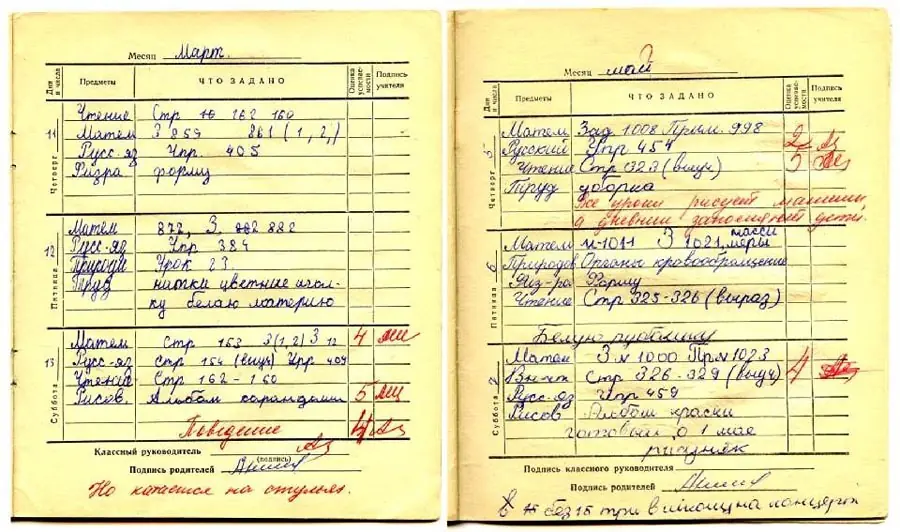 Месяц Март.
Дни и числа Предметы ЧТО ЗАДАНО Оценка успеваемости Подпись учителя
11 Четверг
Чтение Стр 162 160
Матем З 859 861 (1, 2,)
Русс-яз Упр. 405
Физра форму
12 Пятница
Матем 872, З. 882
Русс-яз Упр 384
Природи Урок 23
Труд нитки цветные игол-
ку белаю материю
13 Суббота
Матем Стр 163 3(1,2) 3 12 4
Русс-яз Стр 154 (выуч) Упр 409
Чтений Стр 162-160
Рисов. Альбом карандаши 5
Поведение 4
Классный руководитель
(подпись)
Подпись родителей
Но катается на стульях.
Месяц май
Дни и числа Предметы ЧТО ЗАДАНО Оценка успеваемости Подпись учителя
5 Четверг
Матем Зад 1008 Прим. 998
Русский Упр 454 2
Чтение Стр 323 (выуч) 5
Труд уборка
Все уроки рисует машины,
а дневник заполняют дети.
6 Пятница
массы
Матем №1011 З 1021, меры
Природов Органы кровообращение
Физ-ра Форму
Чтение Стр 325-326 (выраз)
Белую рубашку
Суббота
Матем З № 1000 Пр № 1023
Вн-чт Стр 326-329 (выуч) 4
Русс-яз Упр 459
Рисов Альбом краски
готовый о 1 мае
рисуняк
Подпись классного руководителя
Подпись родителей
В без 15 три в на концерт